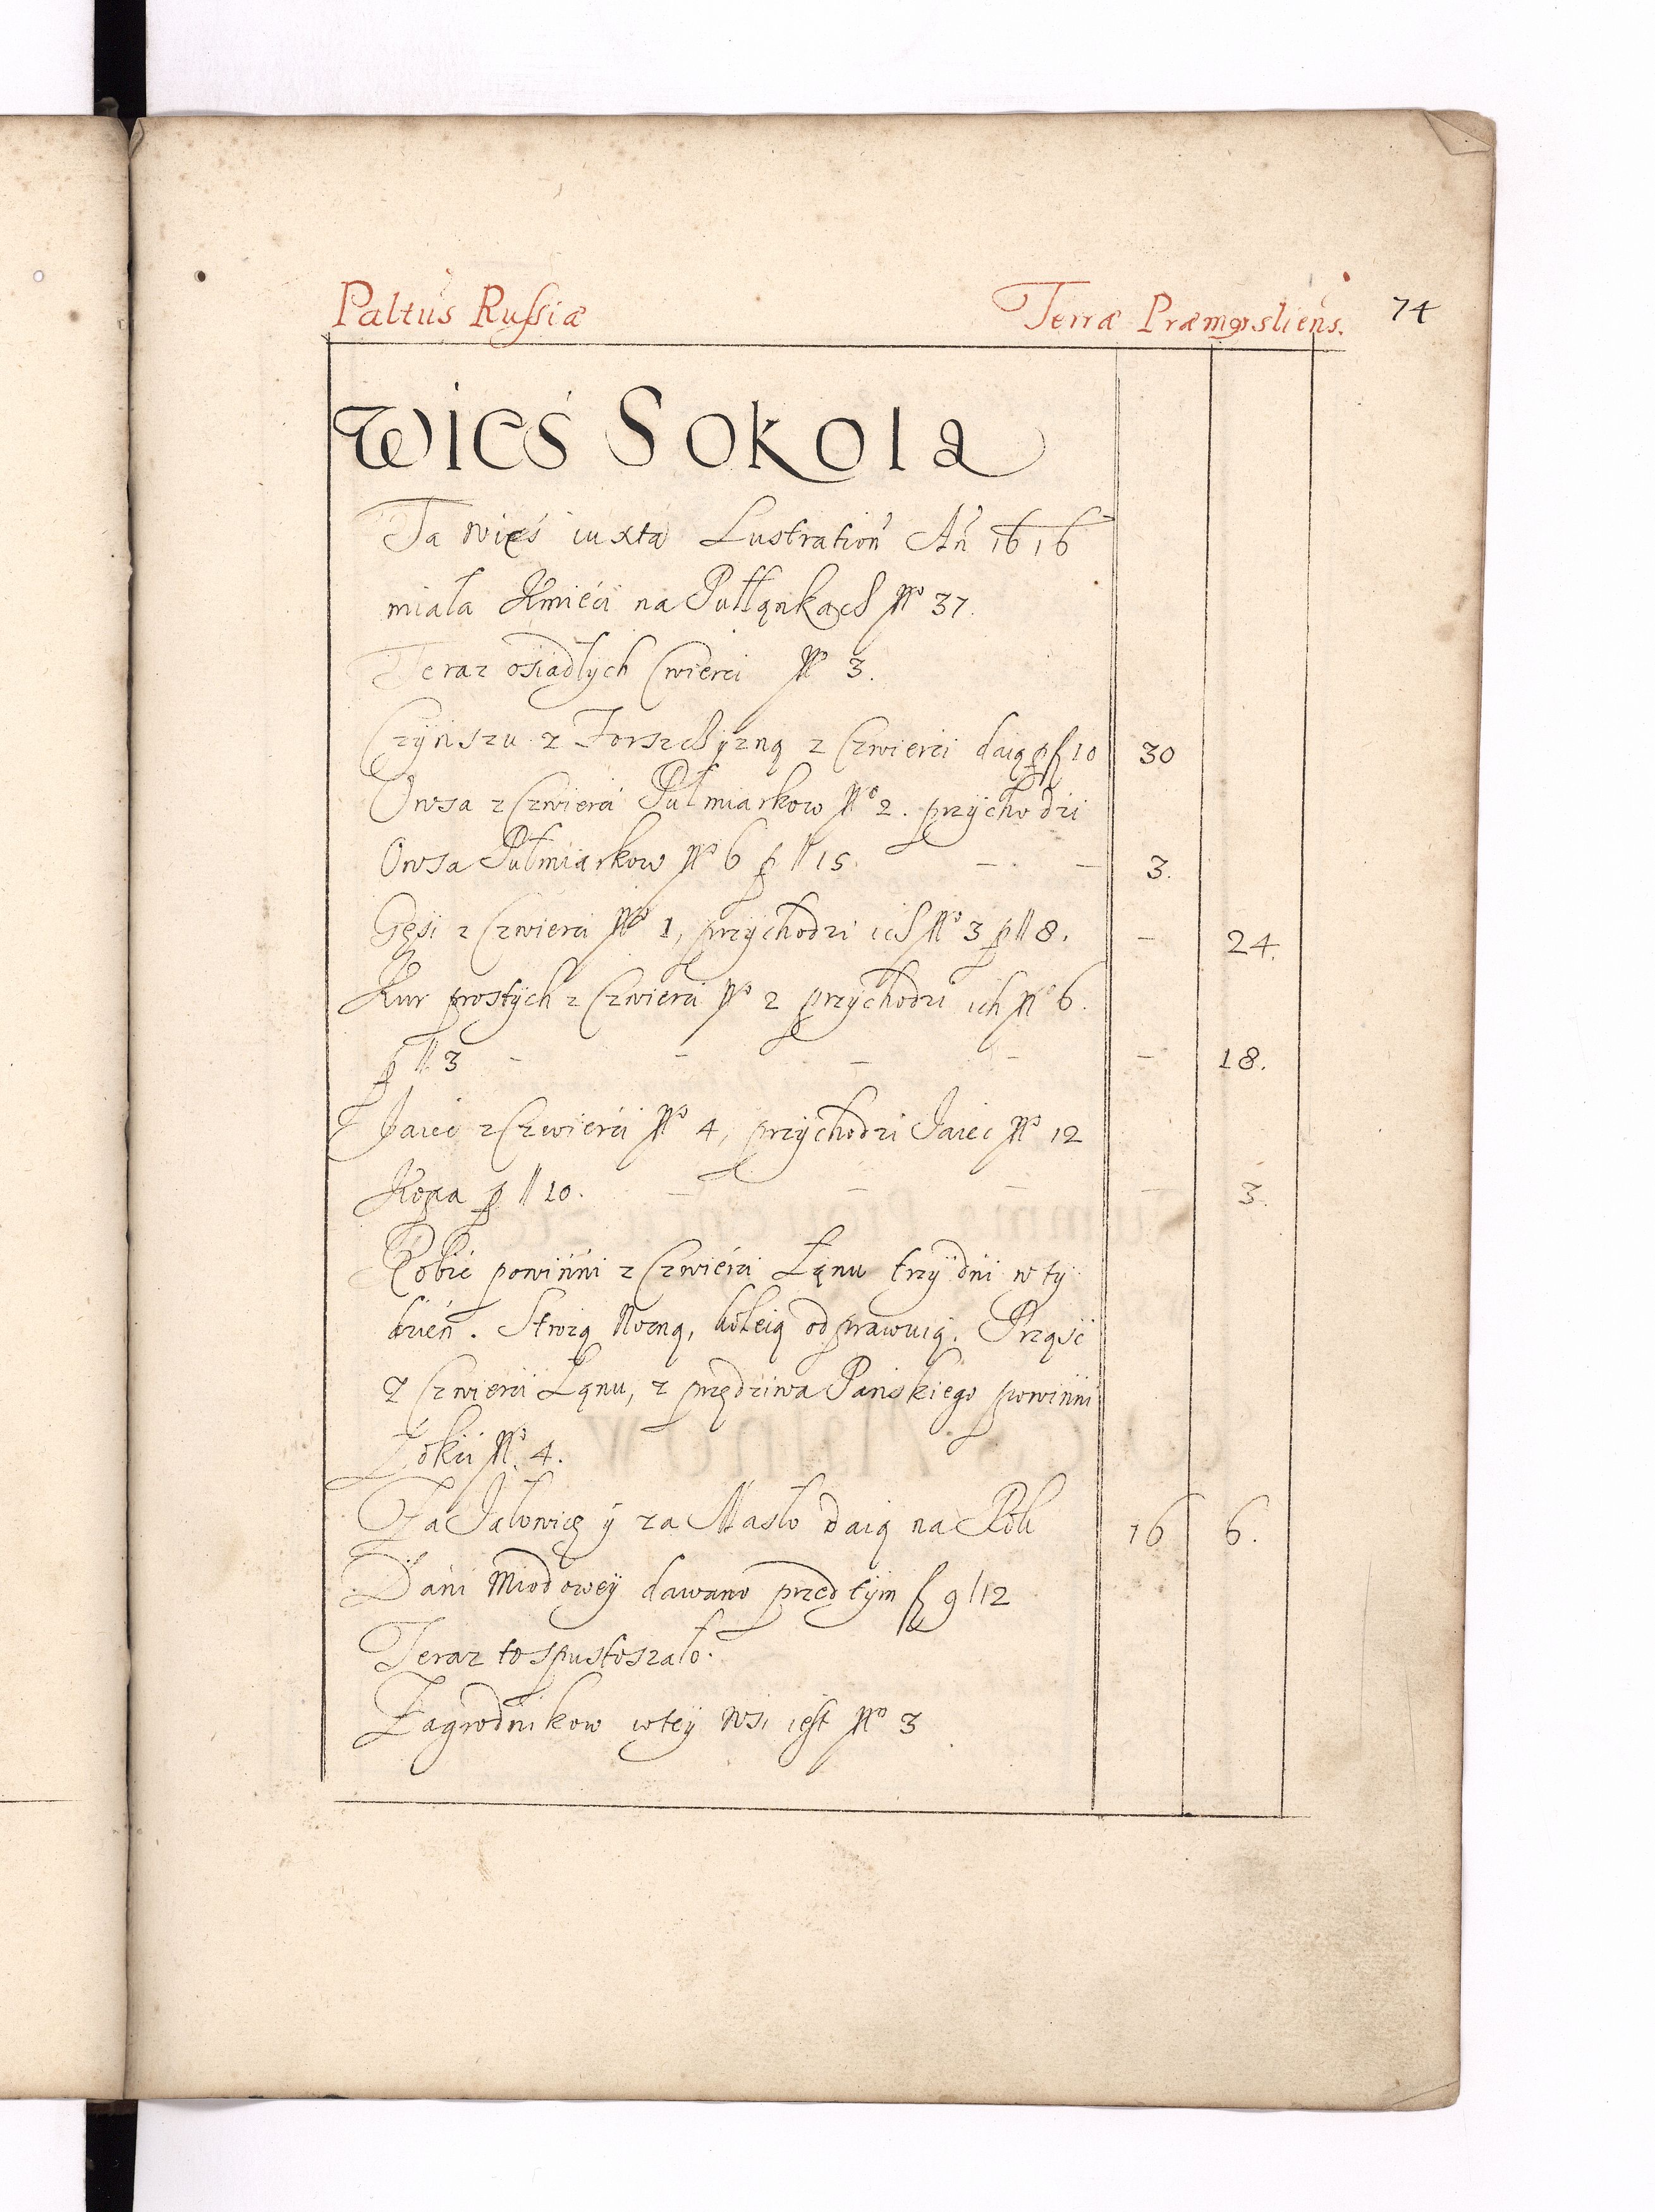 Paltus Russiæ
Terræ Præmysliens.
74
Wieś Sokola
Ta wieś iuxta Lustration An 1616
miała Kmieci na Pułłankach No 37.
Teraz osiadłych Cwierci No 3.
Czynszu z Forszchyzną z Czwierci daią p f 10 30
Owsa z Czwierci Pułmiarkow No 2. przychodzi
Owsa Pułmiarkow No 6 p // 15. – – 3.
Gęsi z Czwierci No 1, przychodzi ich No 3 p // 8. – 24.
Kur prostych z Czwierci No 2 przychodzi ich No 6.
p // 3 – – – – – 18.
Jaiec z Czwierci No 4, przychodzi Jaiec No 12
Kopa p // 10. – – – – 3.
Robić powinni z Czwierci Łanu trzy dni w ty
dzień. Strożą Nocną, koleią odprawuią. Prząść
z Czwierci Łanu, z przędziwa Pańskiego powinni
Łokci No 4.
Za Jałowicę y za Masło daią na Rok 16 6.
Dani Miodowey dawano przed tym f 9 // 12
Teraz to spustoszało.
Zagrodnikow wtey Wsi iest No 3